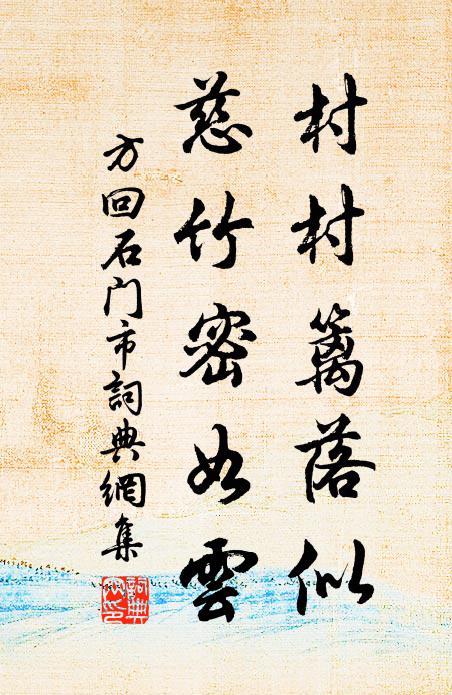 村村篱落似
慈竹密如雲
方回石门市詞典網集